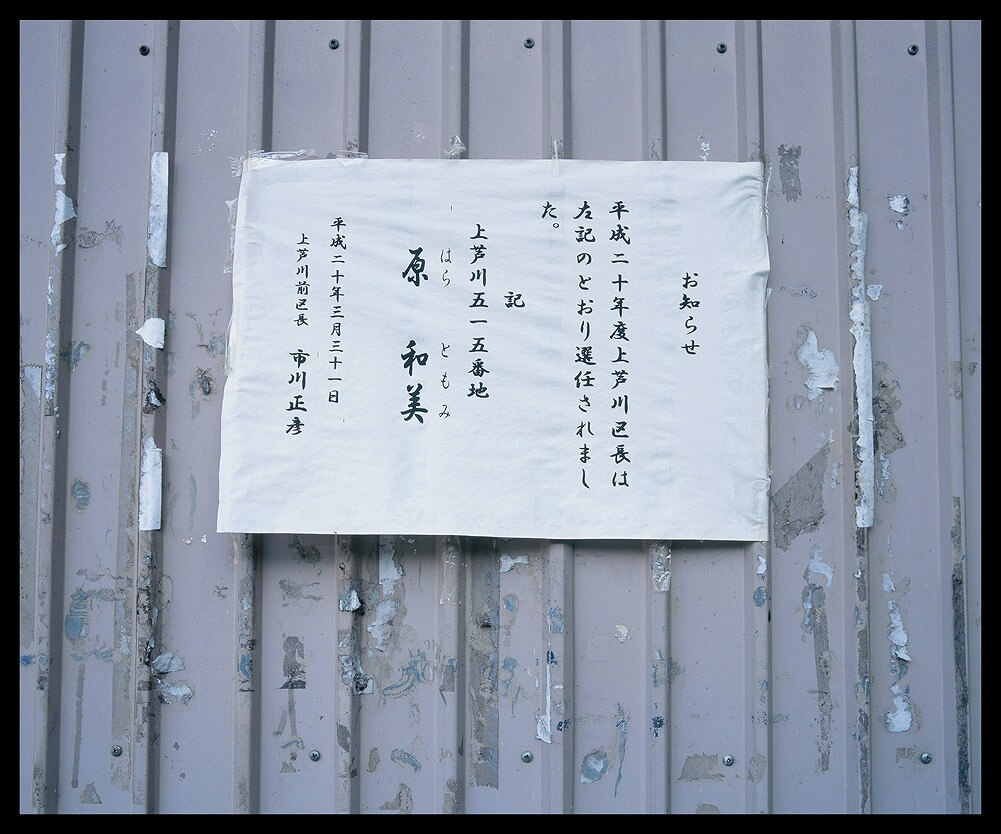 お知らせ
平成二十年度上芦川区長は
左記のとおり選任されまし
た。
記
上芦川五一五番地
はら ともみ
原 和美
平成二十年三月三十一日
上芦川前区長 市川正彦